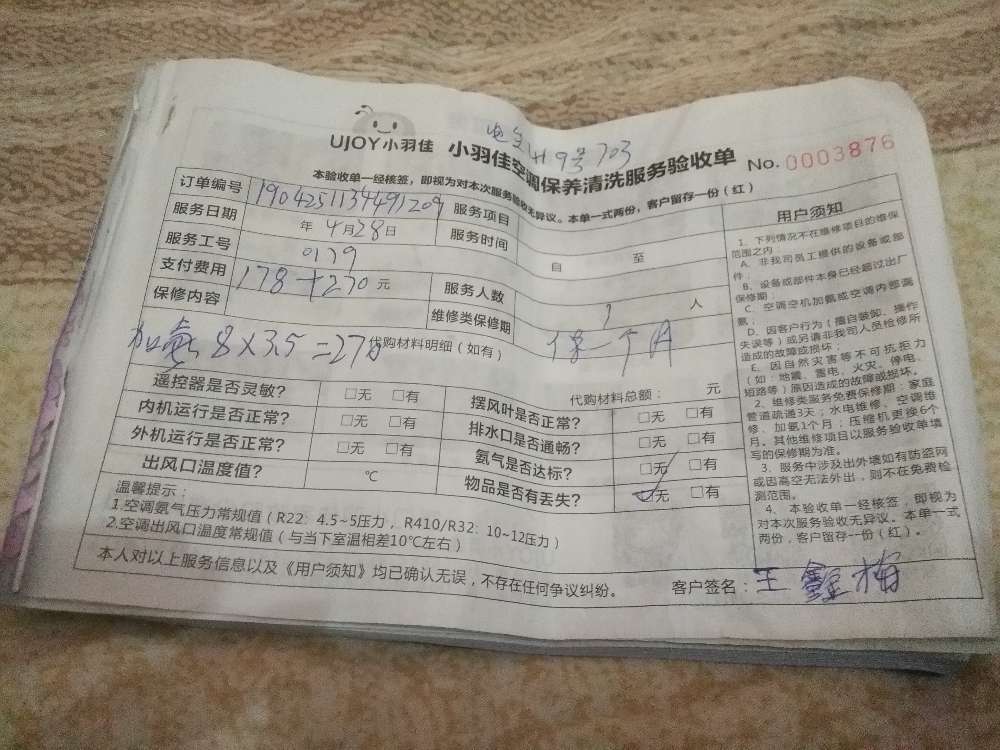 UJOY小羽佳 小羽佳空调保养清洗服务验收单 No.0003876
9号703
本验收单一经核签，即视为对本次服务验收无异议。本单一式两份，客户留存一份（红）
订单编号 1904251134491209 服务项目
服务日期 年4月28日 服务时间 自 至
服务工号 0179
支付费用 178+270元 服务人数 1 人
保修内容 维修类保修期 保一个月
代购材料明细（如有）
8×35=270
代购材料总额： 元
遥控器是否灵敏？ □无 □有 摆风叶是否正常？ □无 □有
内机运行是否正常？ □无 □有 排水口是否通畅？ □无 □有
外机运行是否正常？ □无 □有 氨气是否达标？ □无 □有
出风口温度值？ ℃ 物品是否有丢失？ □无 □有
温馨提示：
1.空调氨气压力常规值（R22：4.5~5压力，R410/R32：10~12压力）
2.空调出风口温度常规值（与当下室温相差10℃左右）
本人对以上服务信息以及《用户须知》均已确认无误，不存在任何争议纠纷。
客户签名：王鑫梅
用户须知
1、下列情况不在维修项目的维保
范围之内：
A、非我司员工提供的设备或部
件；
B、设备或部件本身已经超过出厂
保修期；
C、空调空机加氨或空调内部漏
氨；
D、因客户行为（擅自装卸、操作
失误等）或另请非我司人员检修所
造成的故障或损坏；
E、因自然灾害等不可抗拒力
（如：地震、雷电、火灾、停电、
短路等）原因造成的故障或损坏。
2、维修类服务免费保修期：家庭
管道疏通3天；水电维修、空调维
修、加氨1个月；压缩机更换6个
月。其他维修项目以服务验收单填
写的保修期为准。
3、服务中涉及出外墙如有防盗网
或因高空无法外出，则不在免费检
测范围。
4、本验收单一经核签，即视为
对本次服务验收无异议。本单一式
两份，客户留存一份（红）。